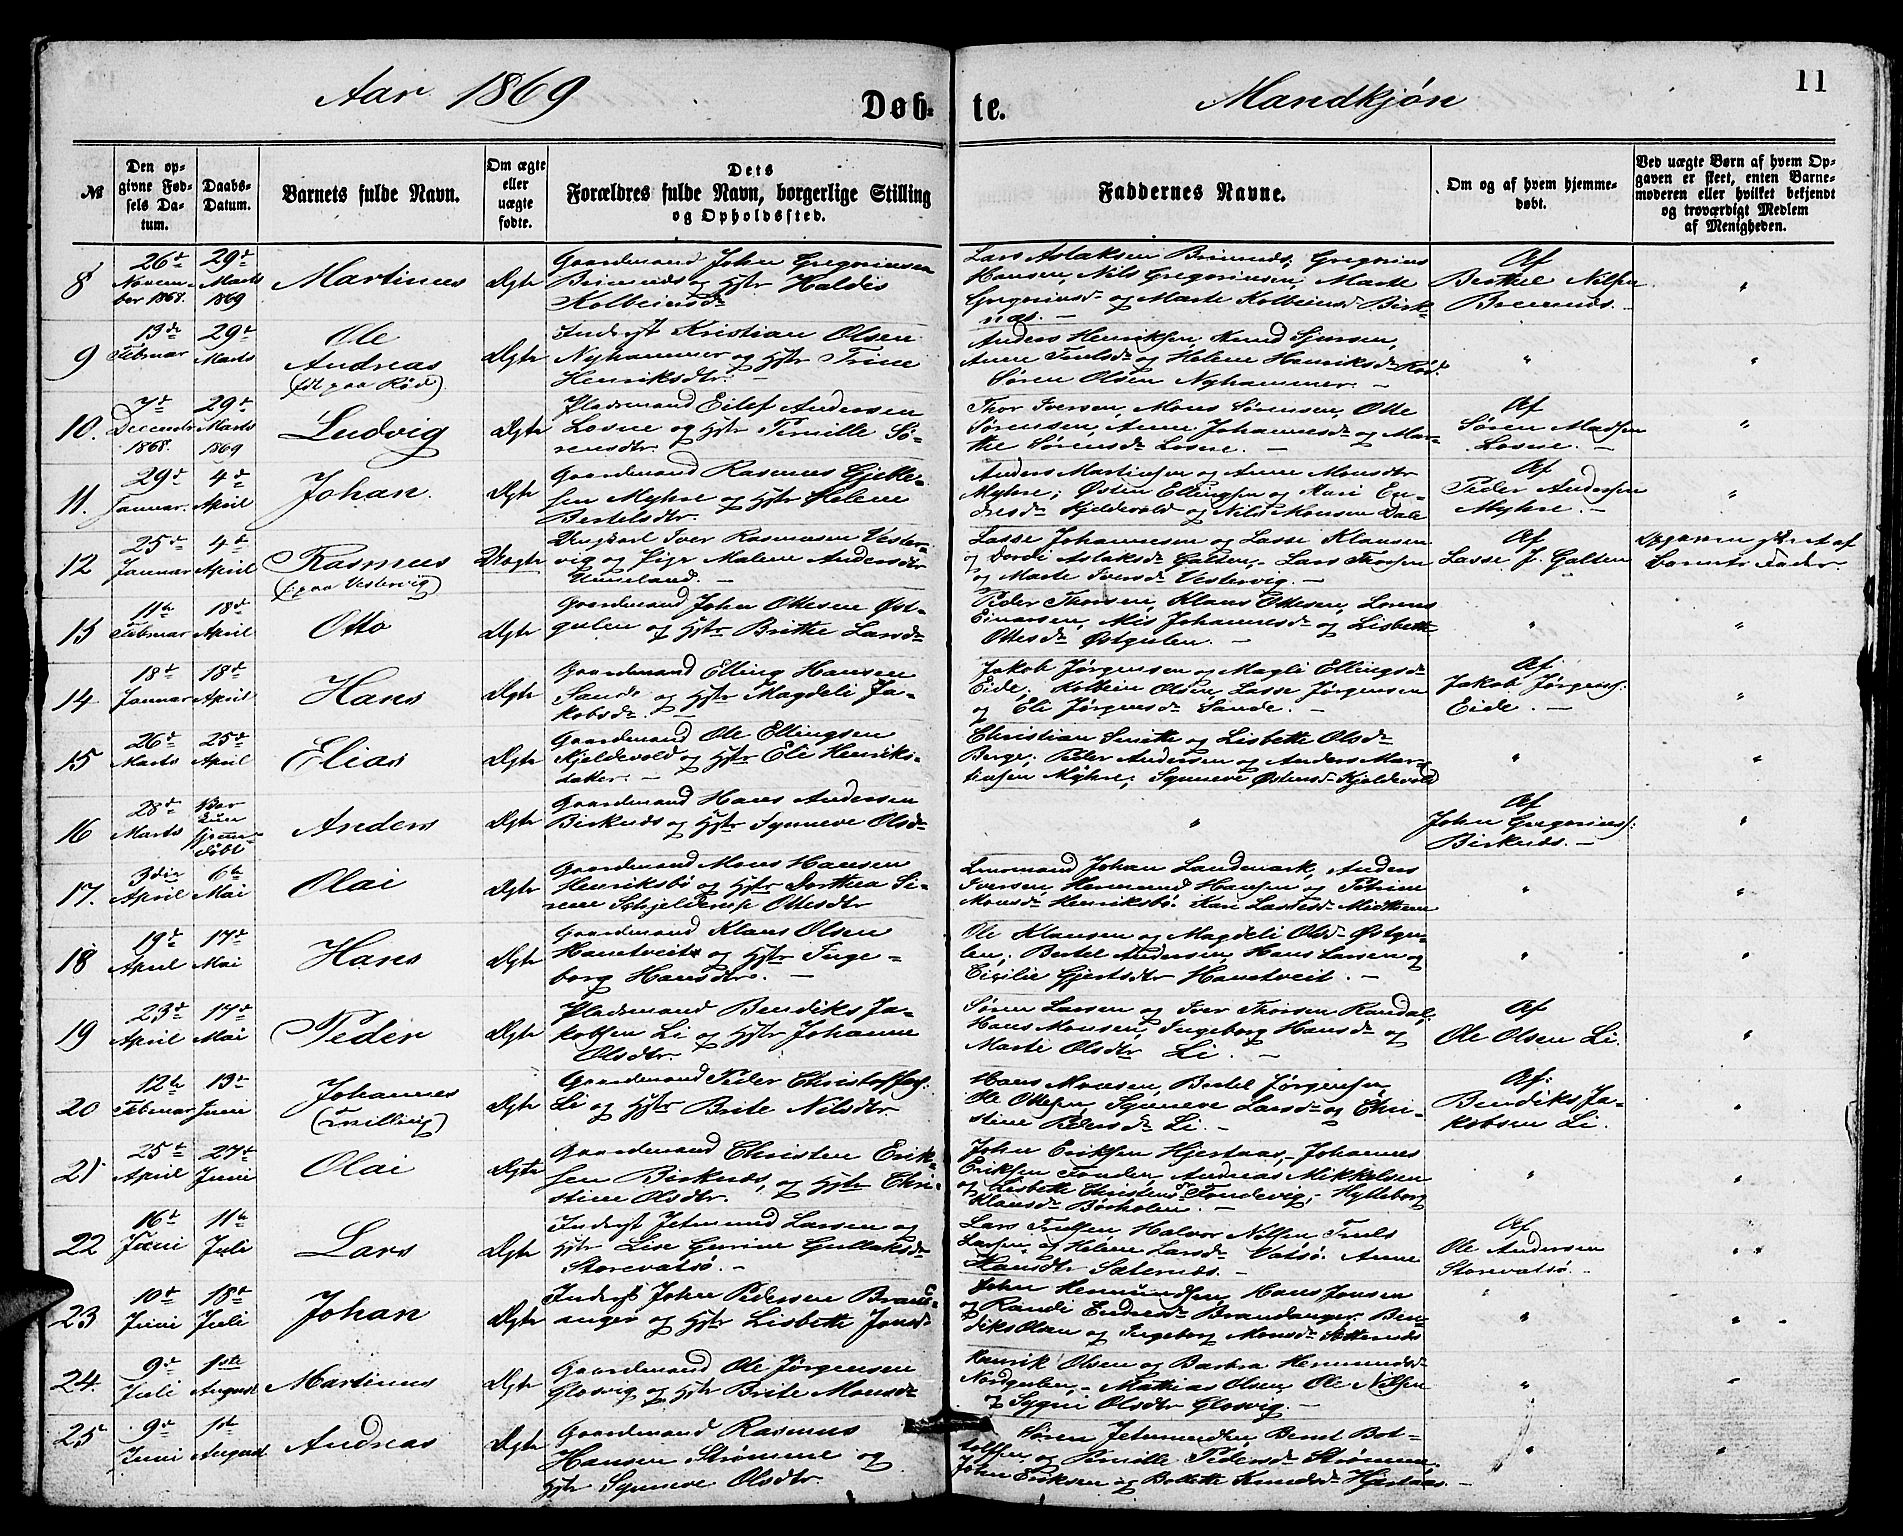 Aar 1869
Døb-
te.
Mandkjøn
11
№
Den op-
givne Fød-
sels Da-
tum.
Daabs-
Datum.
Barnets fulde Navn.
Om ægte
eller
uægte
fødte.
Dets
Forældres fulde Navn, borgerlige Stilling
og Opholdssted.
Faddernes Navne.
Om og af hvem hjemme-
døbt.
Ved uægte Børn af hvem Op-
gaven er skeet, enten Barne-
moderen eller hvilket bekjendt
og troværdigt Medlem
af Menigheden.
8
26de
Novem-
ber 1868.
29de
Marts
1869
Martinus
Ægte
Gaardmand John Gregoriusen
og Hstr Haldis
Kolbeinsdr
Lars Aslaksen Gregorius
Hansen, Nils Gregoriusen, Marte
Gregoriusdr og Marte Kolbeinsdr Birk-
næs. —
Af
Berthel Nilsen
"
9
13de
Februar
29de
Marts
Ole
Andreas
(født paa Røde)
Ægte
Inderst Kristian Olsen
Nyhammer og Hstr Trine
Henriksdtr. —
Anders Henriksen, Knud Sjursen,
Anne Trulsdr og Helene Henriksdr Röd.
Søren Olsen Nyhammer. —
"
"
10.
7de
Decembr
1868.
29de
Marts
1869
Ludvig
Ægte
Pladsmand Eilef Andersen
Losne og Hstr Pernille Sø-
rensdtr.
Thor Iversen, Mons Sørensen, Otte
Sørensen, Anne Johannesdr og Mar-
the Sørensdr Losne. —
Af
Søren Madsen
Losne.
"
11.
29de
Januar.
4de
April
Johan.
Ægte
Gaardmand Rasmus Gjelle-
sen Myhre og Hstr Helene
Bertelsdtr.
Anders Martinsen og Anne Monsdtr
Myhre; Østen Ellingsen og Mari En-
dresdr Kjeldevold og Nils Monsen Dale
Af
Peder Andersen
Myhre. —
"
12
25de
Januar
4de
April
Rasmus
(paa Vestervig)
Uægte
Ungkarl Iver Rasmusen Vester-
vig og Pige Malene Andersdtr
—
Lasse Johannesen og Lasse Klausen
og Dordi Aslaksdr Galten, Lars Thorsen
og Marte Iversdr Vestervig. —
Af
Lasse J. Galten
Opgaven gjort af
barnets Fader.
13
11te
Februar
18de
April
Otto
Ægte
Gaardmand John Ottesen Øst-
gulen og Hstr Brithe Larsdr
Peder Thorsen, Klaus Ottesen, Lorens
Einarsen, Johannesdr og Lisbeth
Ottesdr Østgulen. —
"
"
14
18de
Januar
18de
April
Hans
Ægte
Gaardmand Elling Hansen
Sande og Hstr Magdeli Ja-
kobsdr. —
Jakob Jørgensen og Magli Ellingsdr
Eide; Kolbein Olsen, Lasse Jørgensen
og Eli Jørgensdr Sande. —
Af
Jakob Jørgens:
Eide. —
"
15
26de
Marts
25de
April
Elias
Ægte
Gaardmand Ole Ellingsen
Kjeldevold og Hstr Eli Henriks-
datter. —
Christian Smitte og Lisbette Olsdr
Berge; Peder Andersen og Anders Mar-
tinsen Myhre; Synneve Østensdr Kjeldevold
"
"
16
28de
Marts
Bar
Kun
hjemme-
døbt
Anders
Ægte
Gaardmand Hans Andersen
Birknæs og Hstr Synneve Olsdr
"
Af
John Gregorius:
Birknæs. —
"
17.
3die
April
6te
Mai
Olai
Ægte
Gaardmand Mons Hansen
Henriksbø og Hstr Dorthea Si-
rene Schjelderup Ottesdtr
Lensmand Johan Landmark, Anders
Iversen, Hermund Hansen og Petrine
Monsdr Henriksbø. Kari Lassesdr Midttun
"
"
18
19de
April
17de
Mai
Hans
Ægte
Gaardmand Klaus Olsen
Hantveit og Hstr Inge-
borg Hansdtr. —
Ole Klausen og Magdeli Olsdr Østgu-
len; Bertel Andersen, Hans Larsen og
Cicilie Gjertsdtr Hantveit. —
"
"
19
23de
April
17de
Mai
Peder
Ægte
Pladsmand Bendiks Ja-
kobsen Li og Hstr Johanne
Olsdtr
Søren Larsen og Iver Thorsen Randal;
Hans Monsen, Ingeborg Hansdr og
Marte Olsdtr Li. —
Af
Ole Olsen Li.
"
20
12te
Februar
13de
Juni
Johannes
(Tvilling)
Ægte
Gaardmand Peder Christoffers:
Li og Hstr Brite Nilsdtr
Hans Monsen, Bertel Jørgensen,
Ole Ottesen, Synneve Larsdr og Chri-
stine Pedersdr Li. —
Af:
Bendiks Ja-
kobsen Li.
"
21
25de
April
27de
Juni
Olai
Ægte
Gaardmand Christen Erik-
sen Birknæs, og Hstr Chri-
stine Olsdtr.
John Eriksen Hjertaas, Johannes
Eriksen Andreas Mikkelsen
og Lisbette Christensdr Hylleborg
Klausdr Børholm. —
"
"
22
16de
Juni
11te
Juli
Lars
Ægte
Inderst Jetmund Larsen og
Hstr Lise Gurine Gullaksdr
Storevatsø. —
Lars Trulsen, Halvor Nilsen Truls
Larsen og Helene Larsdr Vatsø. Anne
Hansdtr Sæternæs. —
Af
Ole Andersen
Storevatsø. —
"
23
10de
Juni
18de
Juli
Johan
Ægte
Inderst John Pedersen Brand-
anger og Hstr Lisbette Jonsdr
John Hermundsen, Hans Jonsen
og Randi Endresdr Brandanger; Ben-
diks Olsen og Ingeborg Monsdr Sæternæs
"
"
24.
9de
Juli
1ste
August
Martinus
Ægte
Gaardmand Ole Jørgensen
Glosvig og Hstr Brite Monsdr
Henrik Olsen og Barbra Hermundsdr
Nordgulen, Mathias Olsen, Ole Nilsen
og Sygni Olsdtr Glosvig. —
"
"
25
9de
Juni
1ste
August
Andreas
Ægte
Gaardmand Rasmus
Hansen Strømme og
Hstr Synneve Olsdtr
Søren Jetmundsen Bernt Bot-
tolfsen og Pernille Pedersdr Strømme.
John Eriksen og Bolette Knudsdr Hjertaas. —
"
"